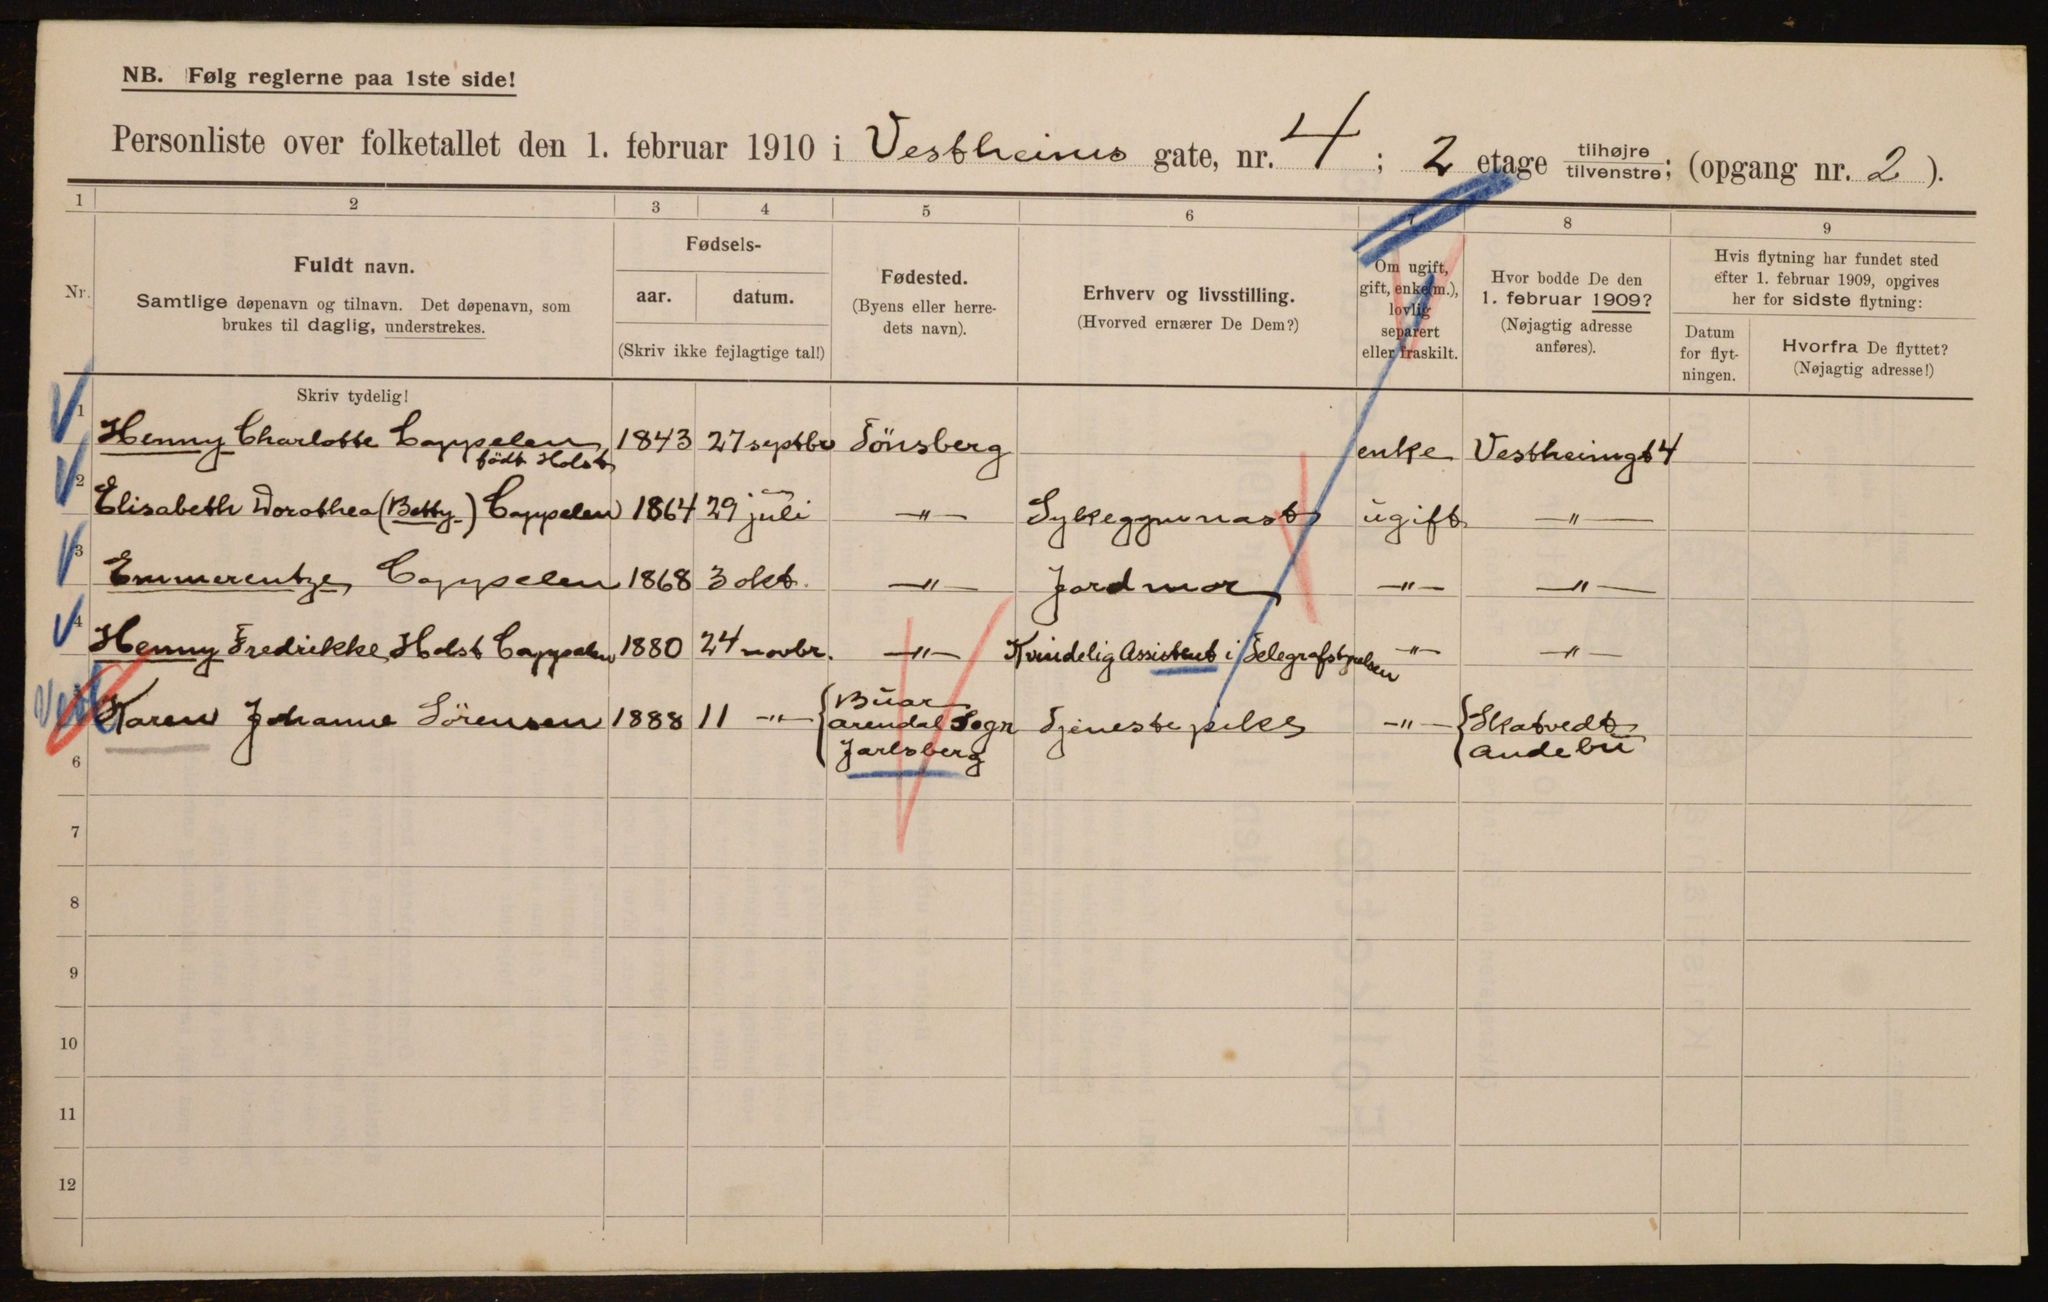 NB. Følg reglerne paa 1ste side!
Personliste over folketallet den 1. februar 1910 i Vestheims gate, nr. 4 ; 2 etage tilhøjre tilvenstre; (opgang nr. 2 ).
1 2 3 4 5 6 7 8 9
Nr.
Fuldt navn.
Samtlige døpenavn og tilnavn. Det døpenavn, som
brukes til daglig, understrekes.
Fødsels-
aar. datum.
(Skriv ikke fejlagtige tal!)
Fødested.
(Byens eller herre-
dets navn).
Erhverv og livsstilling.
(Hvorved ernærer De Dem?)
Om ugift,
gift, enke(m.),
lovlig
separert
eller fraskilt.
Hvor bodde De den
1. februar 1909?
(Nøjagtig adresse
anføres).
Hvis flytning har fundet sted
efter 1. februar 1909, opgives
her for sidste flytning:
Datum
for flyt-
ningen.
Hvorfra De flyttet?
(Nøjagtig adresse!)
Skriv tydelig!
1 Henny Charlotte Cappelen 1843 27 septbr Tönsberg enke Vestheimgt 4
född Holst
2 Elisabeth Dorothea (Betty) Cappelen 1864 29 juli -"- Sykegymnast ugift -"-
3 Emmerentze Cappelen 1868 3 okt. -"- Jordmor -"- -"-
4 Henny Fredrikke Holst Cappelen 1880 24 novbr. -"- Kvindelig Assistent i Telegrafstyrelsen -"- -"-
Karen Johanne Sörensen 1888 11 -"- { Buar
Arendal Sogn
Jarlsberg Tjenestepike -"- { Skatvedt
Andebu
6
7
8
9
10
11
12